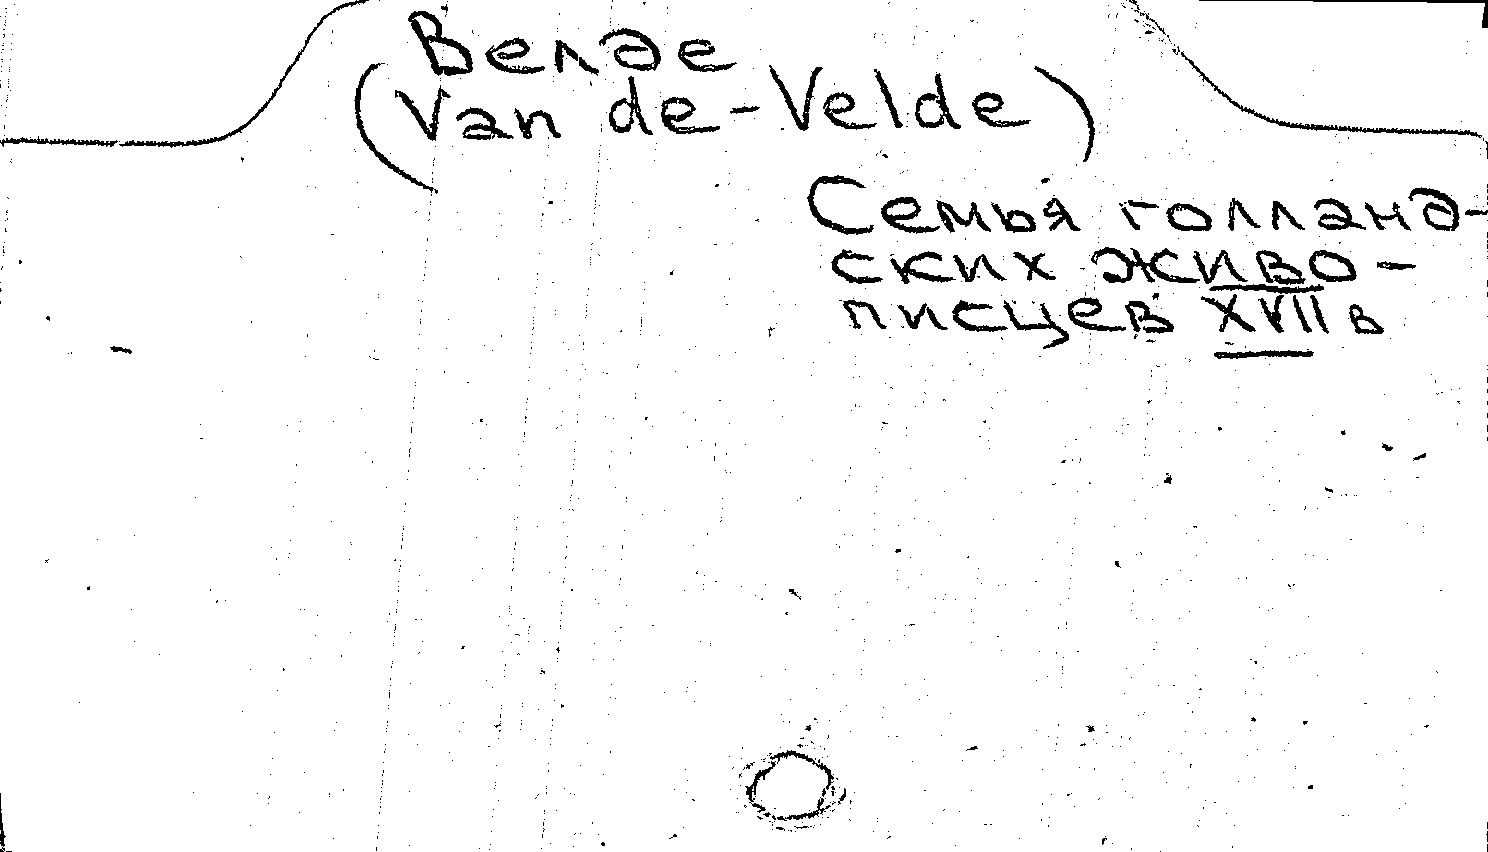 Велде
(Van de-Velde)
Семья голланд-
ских живо-
писцев XVII в